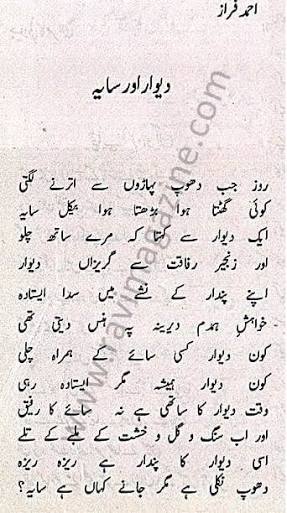 احمد فراز
دیوار اور سایہ
روز جب دھوپ پہاڑوں سے اترنے لگتی
کوئی گھٹتا ہوا بڑھتا ہوا بیکل سایہ
ایک دیوار سے کہتا کہ مرے ساتھ چلو
اور زنجیر رفاقت سے گریزاں دیوار
اپنے پندار کے نشے میں سدا ایستادہ
خواہش ہمدم دیرینہ پہ ہنس دیتی تھی
کون دیوار کسی سائے کے ہمراہ چلی
کون دیوار ہمیشہ مگر ایستادہ رہی
وقت دیوار کا ساتھی ہے نہ سائے کا رفیق
اور اب سنگ و گل و خشت کے ملبے کے تلے
اسی دیوار کا پندار ہے ریزہ ریزہ
دھوپ نکلی ہے مگر جانے کہاں ہے سایہ؟
www.ravimagazine.com